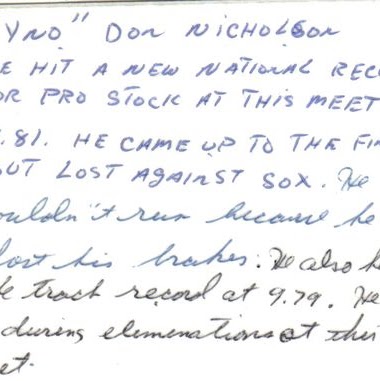 YNO" DON NICHOLSON
E HIT A NEW NATIONAL REC
OR PRO STOCK AT THIS MEET
.81. HE CAME UP TO THE FIN
OUT LOST AGAINST SOX. He
ouldn't run because he
lost his brakes. He also h
he track record at 9.79. He
during elemenations at this
et.